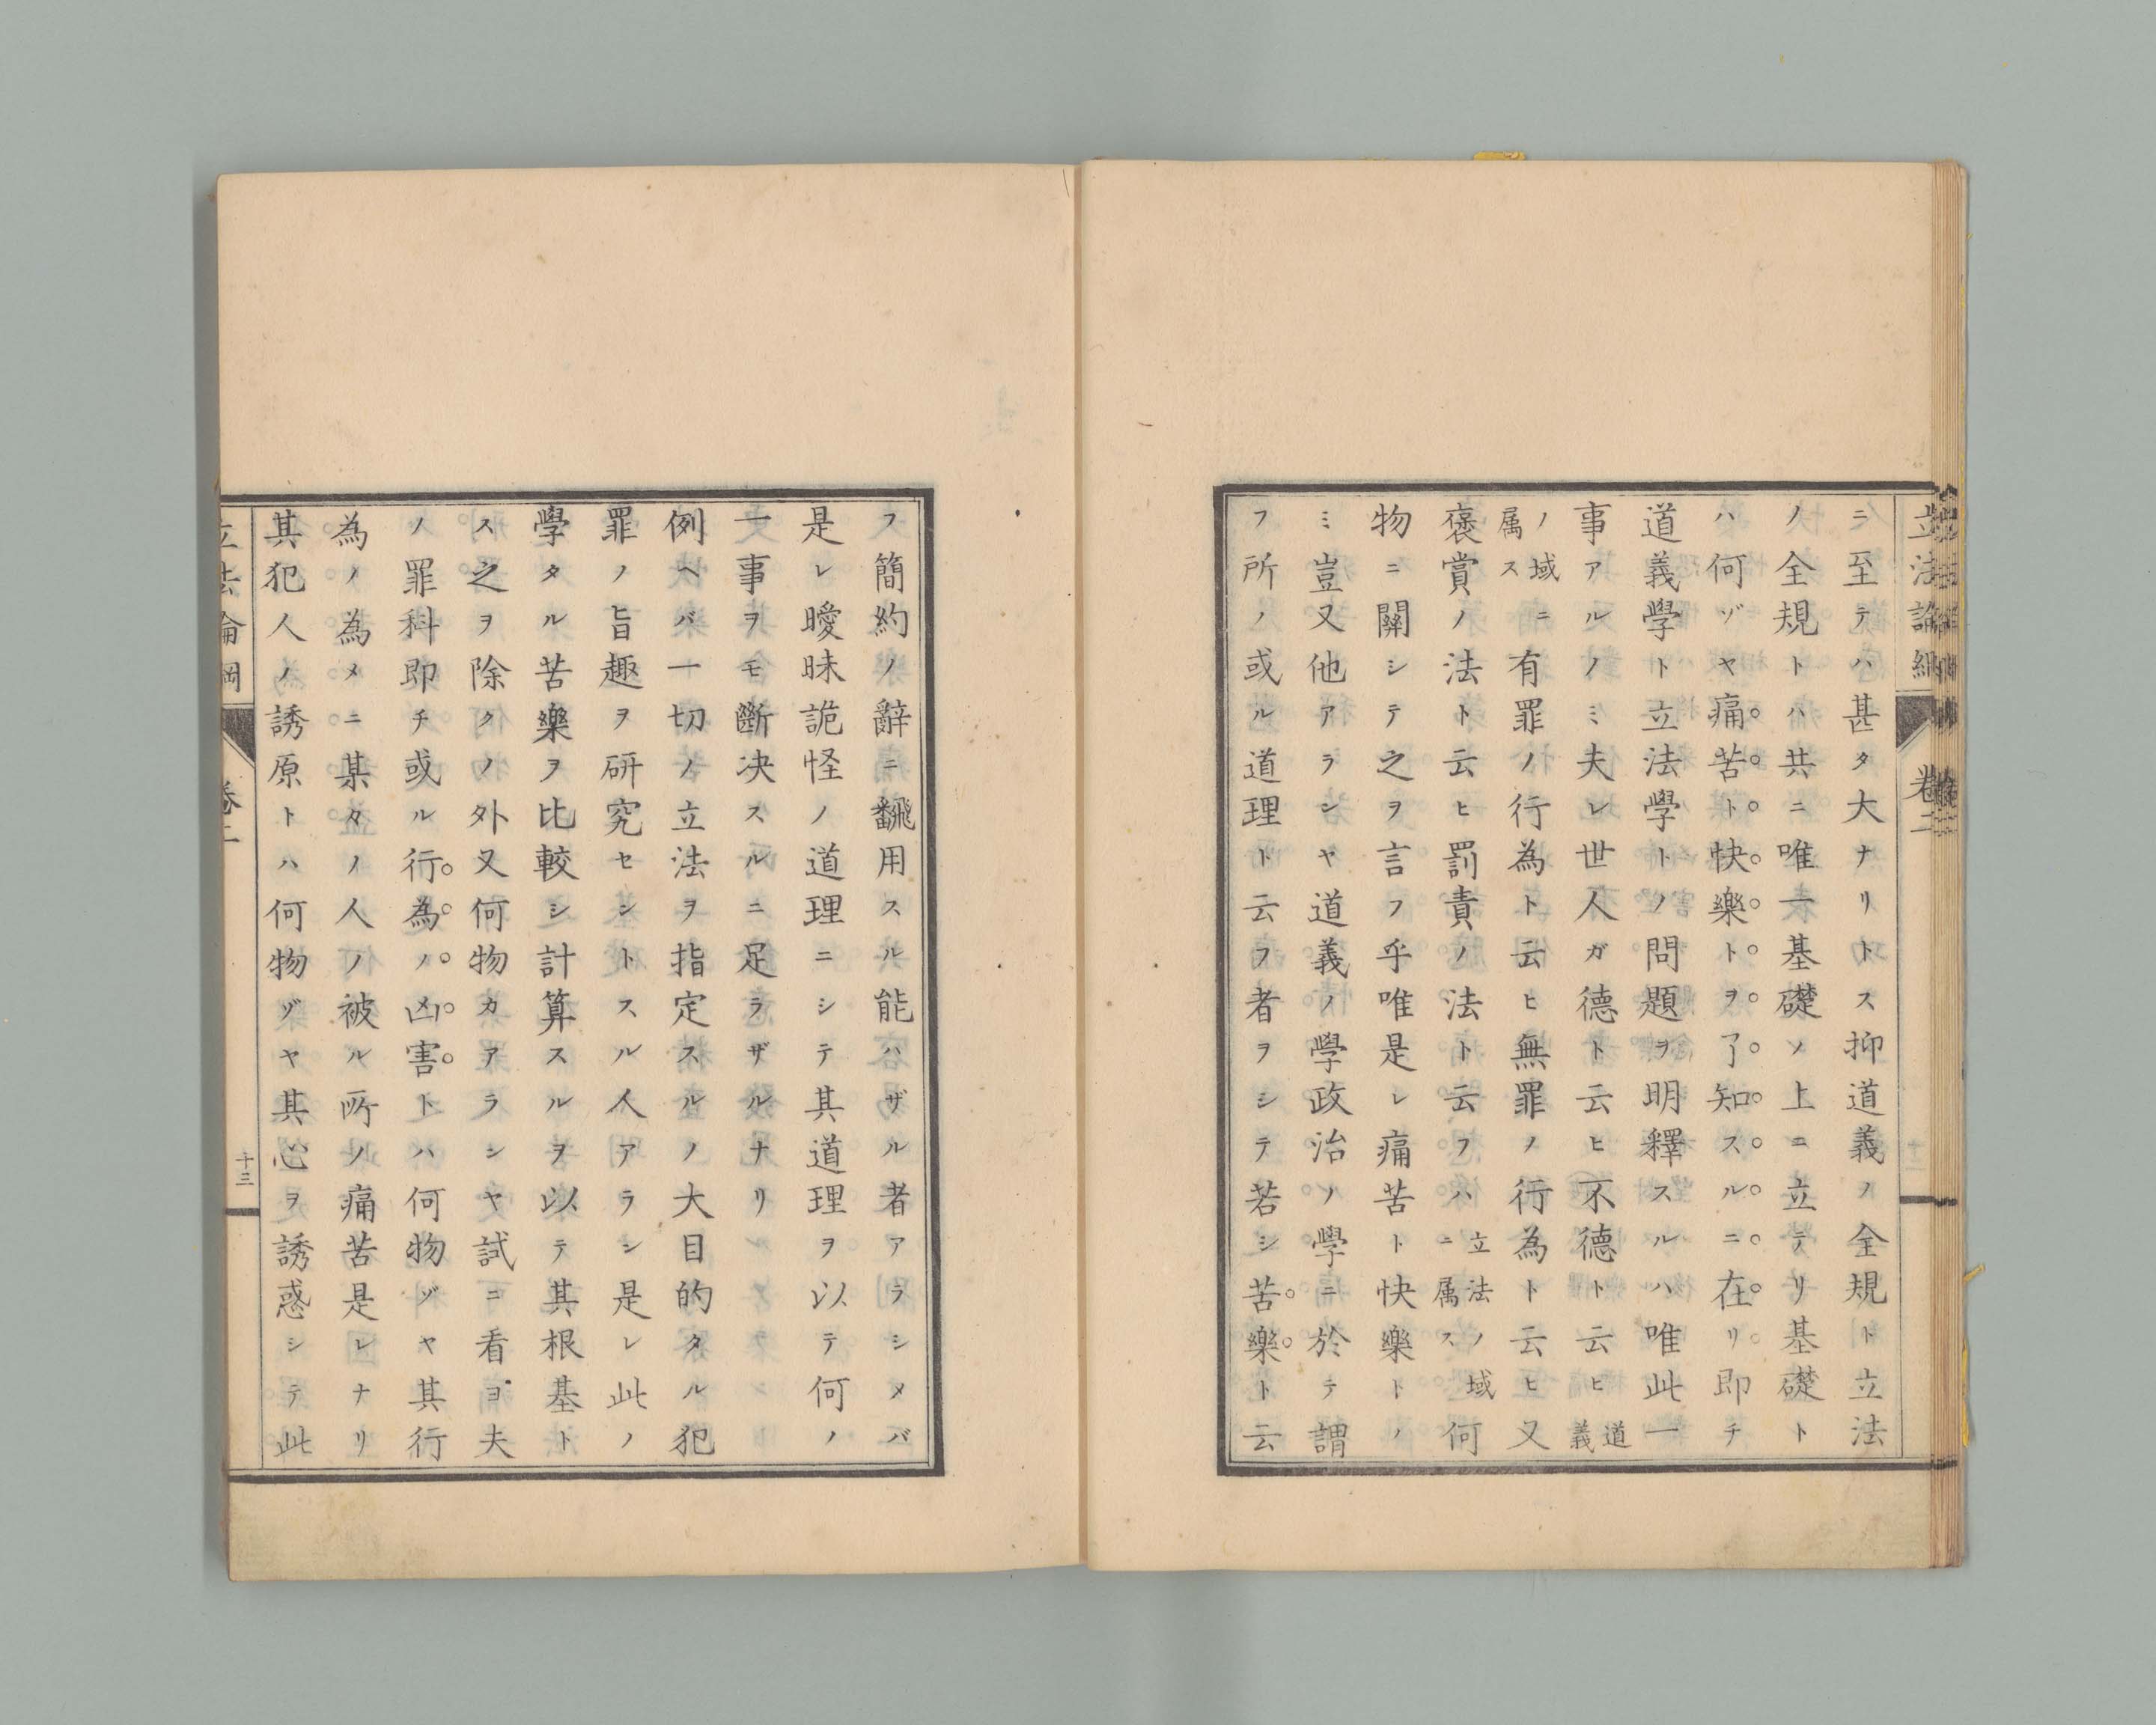 立法論綱 卷二
ニ至テハ甚タ大ナリトス抑道義ノ全規ト立法
ノ全規トハ共ニ唯一基礎ノ上ニ立テリ基礎ト
ハ何ゾヤ痛苦ト快樂トヲ了知スルニ在リ即チ
道義學ト立法學トノ問題ヲ明釋スルハ唯此一
事アルノミ夫レ世人ガ德ト云ヒ不德ト云ヒ道義
ノ域ニ属ス有罪ノ行為ト云ヒ無罪ノ行為ト云ヒ又
褒賞ノ法ト云ヒ罰責ノ法ト云フハ立法ノ域ニ属ス何
物ニ關シテ之ヲ言フ乎唯是レ痛苦ト快樂トノ
ミ豈又他アランヤ道義ノ學政治ノ學ニ於テ謂
フ所ノ或ル道理ト云フ者ヲシテ若シ苦樂ト云
フ簡約ノ辭ニ飜用スル能ハザル者アラシメバ
是レ曖昧詭怪ノ道理ニシテ其道理ヲ以テ何ノ
一事ヲモ斷决スルニ足ラザルナリ
例ヘバ一切ノ立法ヲ指定スルノ大目的タル犯
罪ノ旨趣ヲ研究セントスル人アラン是レ此ノ
學タル苦樂ヲ比較シ計算スルヲ以テ其根基ト
ス之ヲ除クノ外又何物カアランヤ試ニ看ヨ夫
ノ罪科即チ或ル行為ノ凶害トハ何物ゾヤ其行
為ノ為メニ某々ノ人ノ被ル所ノ痛苦是レナリ
其犯人ノ誘原トハ何物ゾヤ其心ヲ誘惑シテ此
立法論綱 卷二 十三